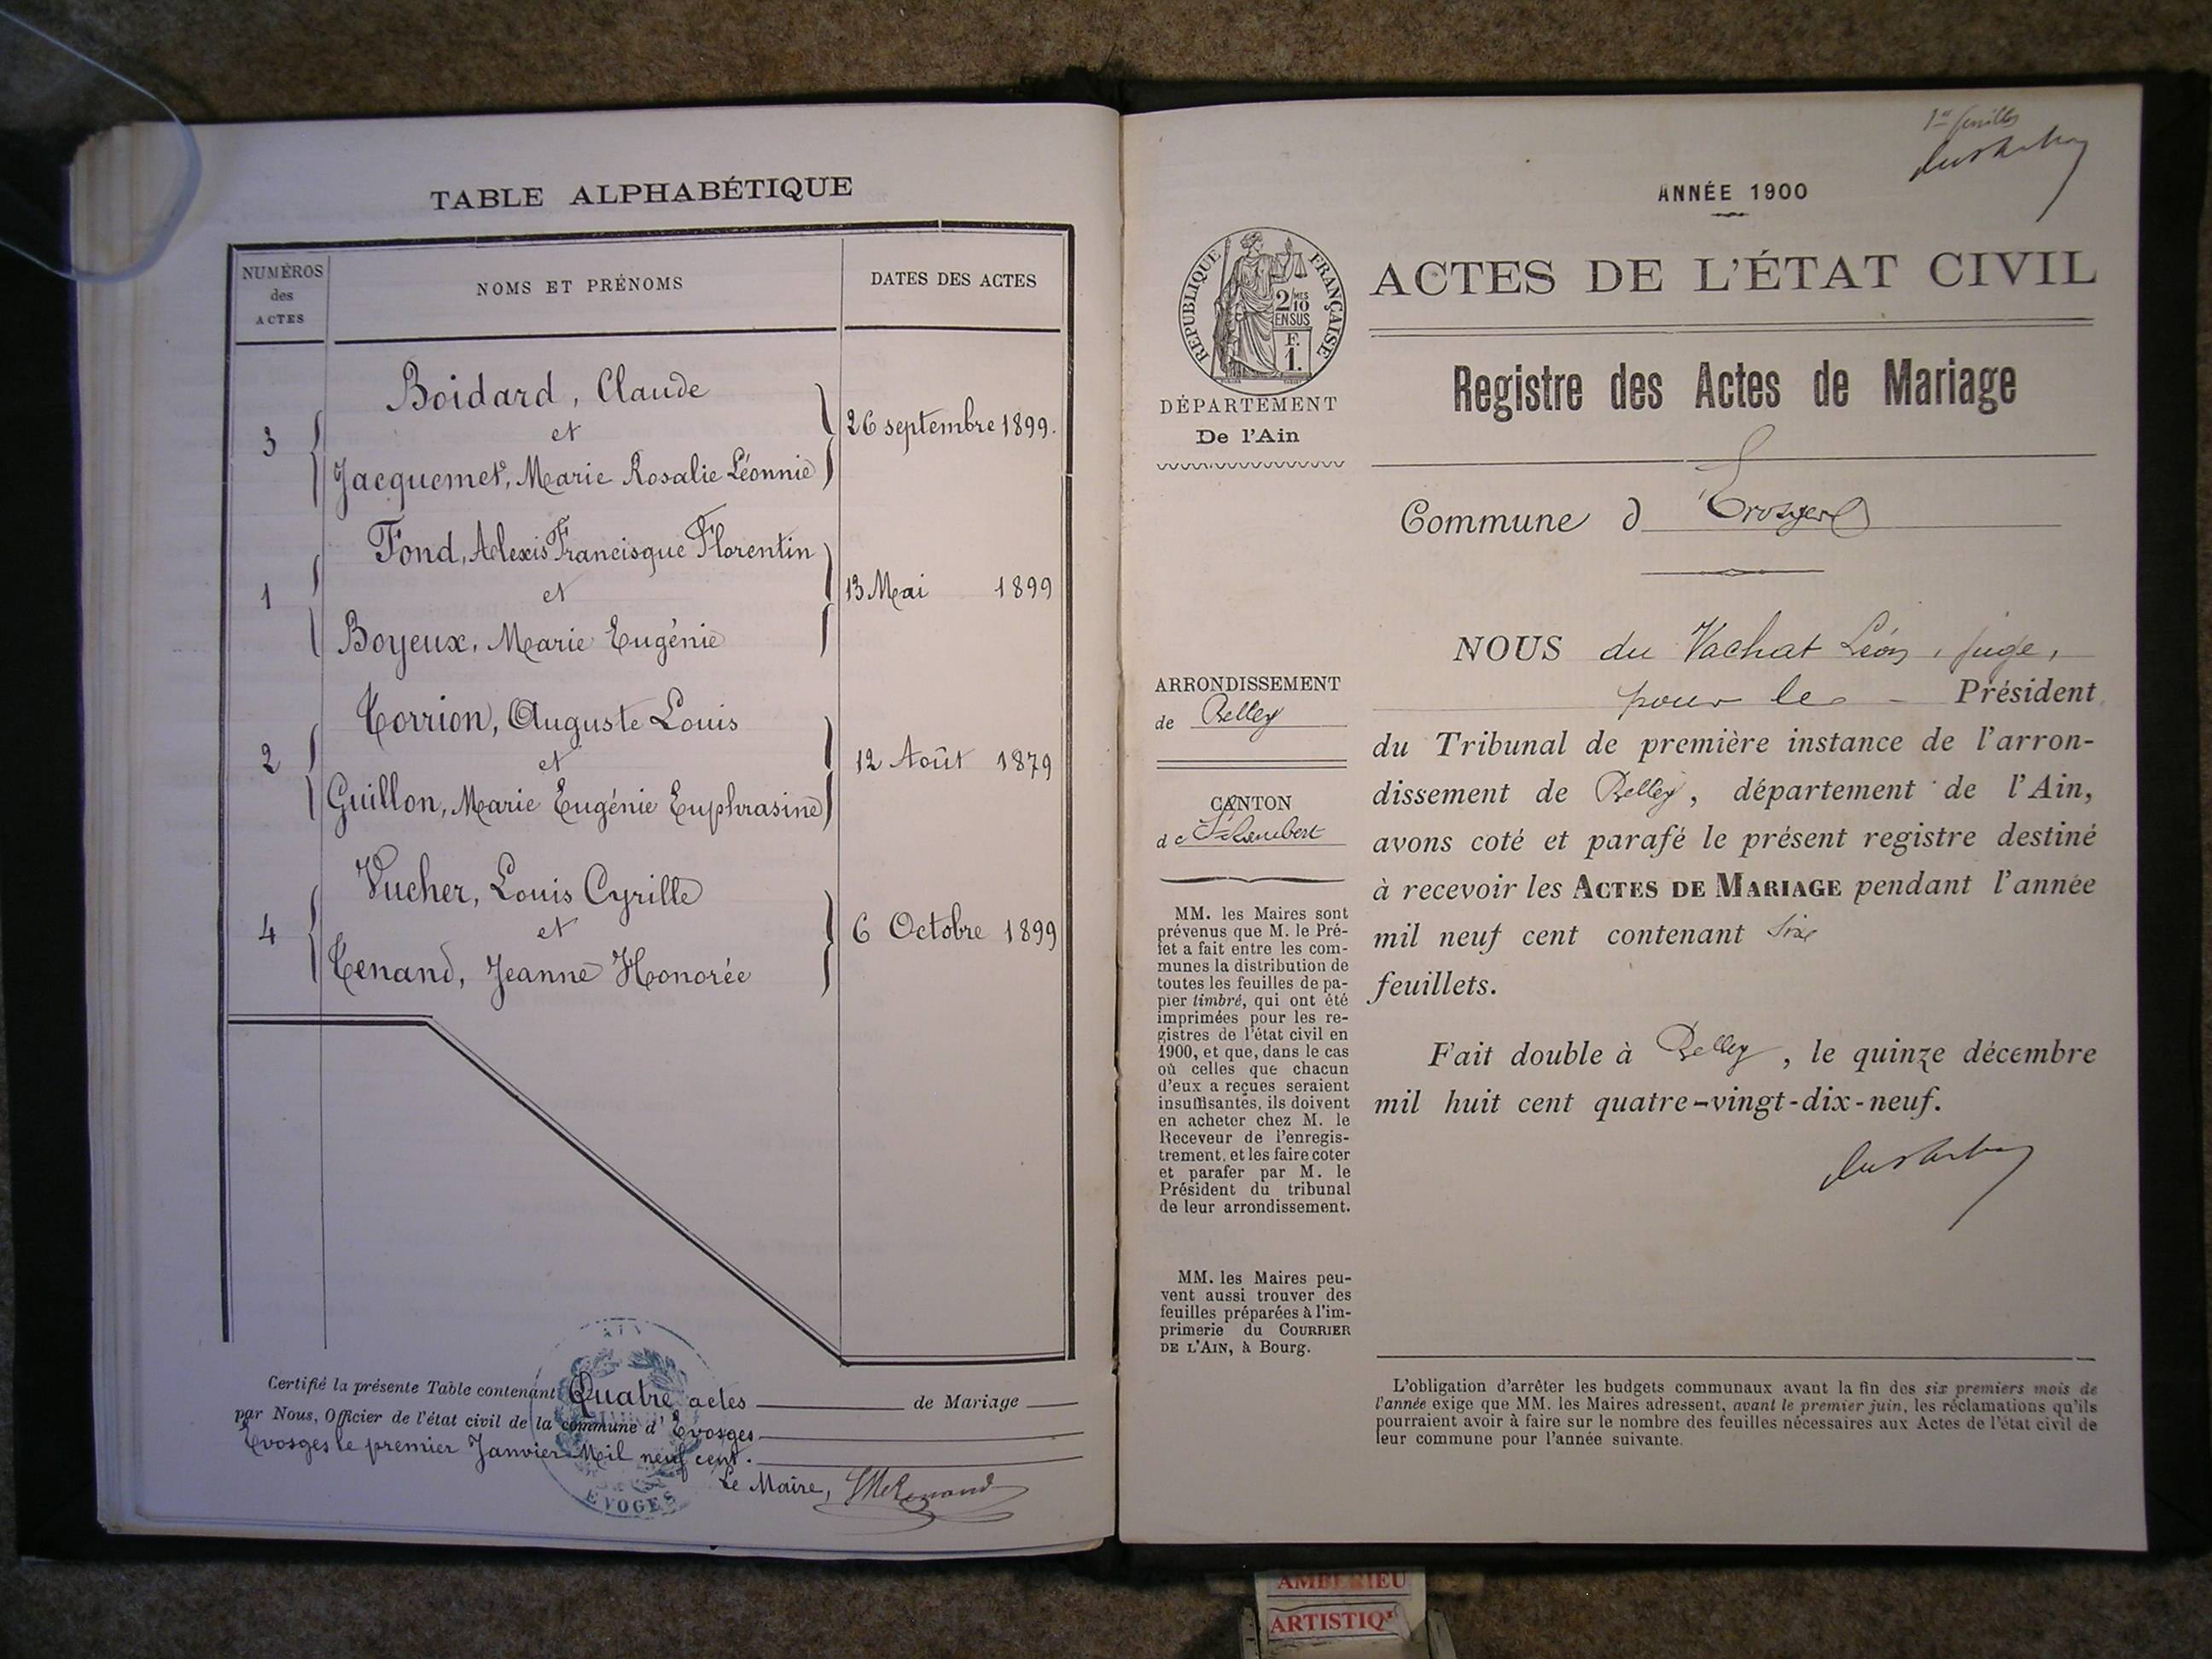 TABLE ALPHABÉTIQUE
NUMÉROS
des
ACTES
NOMS ET PRÉNOMS
DATES DES ACTES
Boidard, Claude
3
et
26 septembre 1899.
Jacquemet, Marie Rosalie Léonnie
Fond, Alexis Francisque Florentin
1
et
13 Mai 1899
Boyeux, Marie Eugénie
Torrion, Auguste Louis
2
et
12 Août 1879
Guillon, Marie Eugénie Euphrasine
Vucher, Louis Cyrille
4
et
6 Octobre 1899
Tenand, Jeanne Honorée
Certifié la présente Table contenant Quatre actes de Mariage
par Nous, Officier de l'état civil de la commune d'Evosges
Evosges le premier Janvier Mil neuf cent.
Le Maire,
AIN
EVOGES
1er feuillet
ANNÉE 1900
RÉPUBLIQUE FRANÇAISE
2/MES
10
EN SUS
F.
1.
ACTES DE L'ÉTAT CIVIL
Registre des Actes de Mariage
DÉPARTEMENT
De l'Ain
Commune d Evosges
NOUS du Vachat Léon, juge,
pour le Président
du Tribunal de première instance de l'arron-
dissement de Belley, département de l'Ain,
avons coté et parafé le présent registre destiné
à recevoir les ACTES DE MARIAGE pendant l'année
mil neuf cent contenant six
feuillets.
Fait double à Belley, le quinze décembre
mil huit cent quatre-vingt-dix-neuf.
ARRONDISSEMENT
de Belley
CANTON
de St Rambert
MM. les Maires sont
prévenus que M. le Pré-
fet a fait entre les com-
munes la distribution de
toutes les feuilles de pa-
pier timbré, qui ont été
imprimées pour les re-
gistres de l'état civil en
1900, et que, dans le cas
où celles que chacun
d'eux a reçues seraient
insuffisantes, ils doivent
en acheter chez M. le
Receveur de l'enregis-
trement, et les faire coter
et parafer par M. le
Président du tribunal
de leur arrondissement.
MM. les Maires peu-
vent aussi trouver des
feuilles préparées à l'im-
primerie du COURRIER
DE L'AIN, à Bourg.
L'obligation d'arrêter les budgets communaux avant la fin des six premiers mois de
l'année exige que MM. les Maires adressent, avant le premier juin, les réclamations qu'ils
pourraient avoir à faire sur le nombre des feuilles nécessaires aux Actes de l'état civil de
leur commune pour l'année suivante.
AMBERIEU
ARTISTIQ